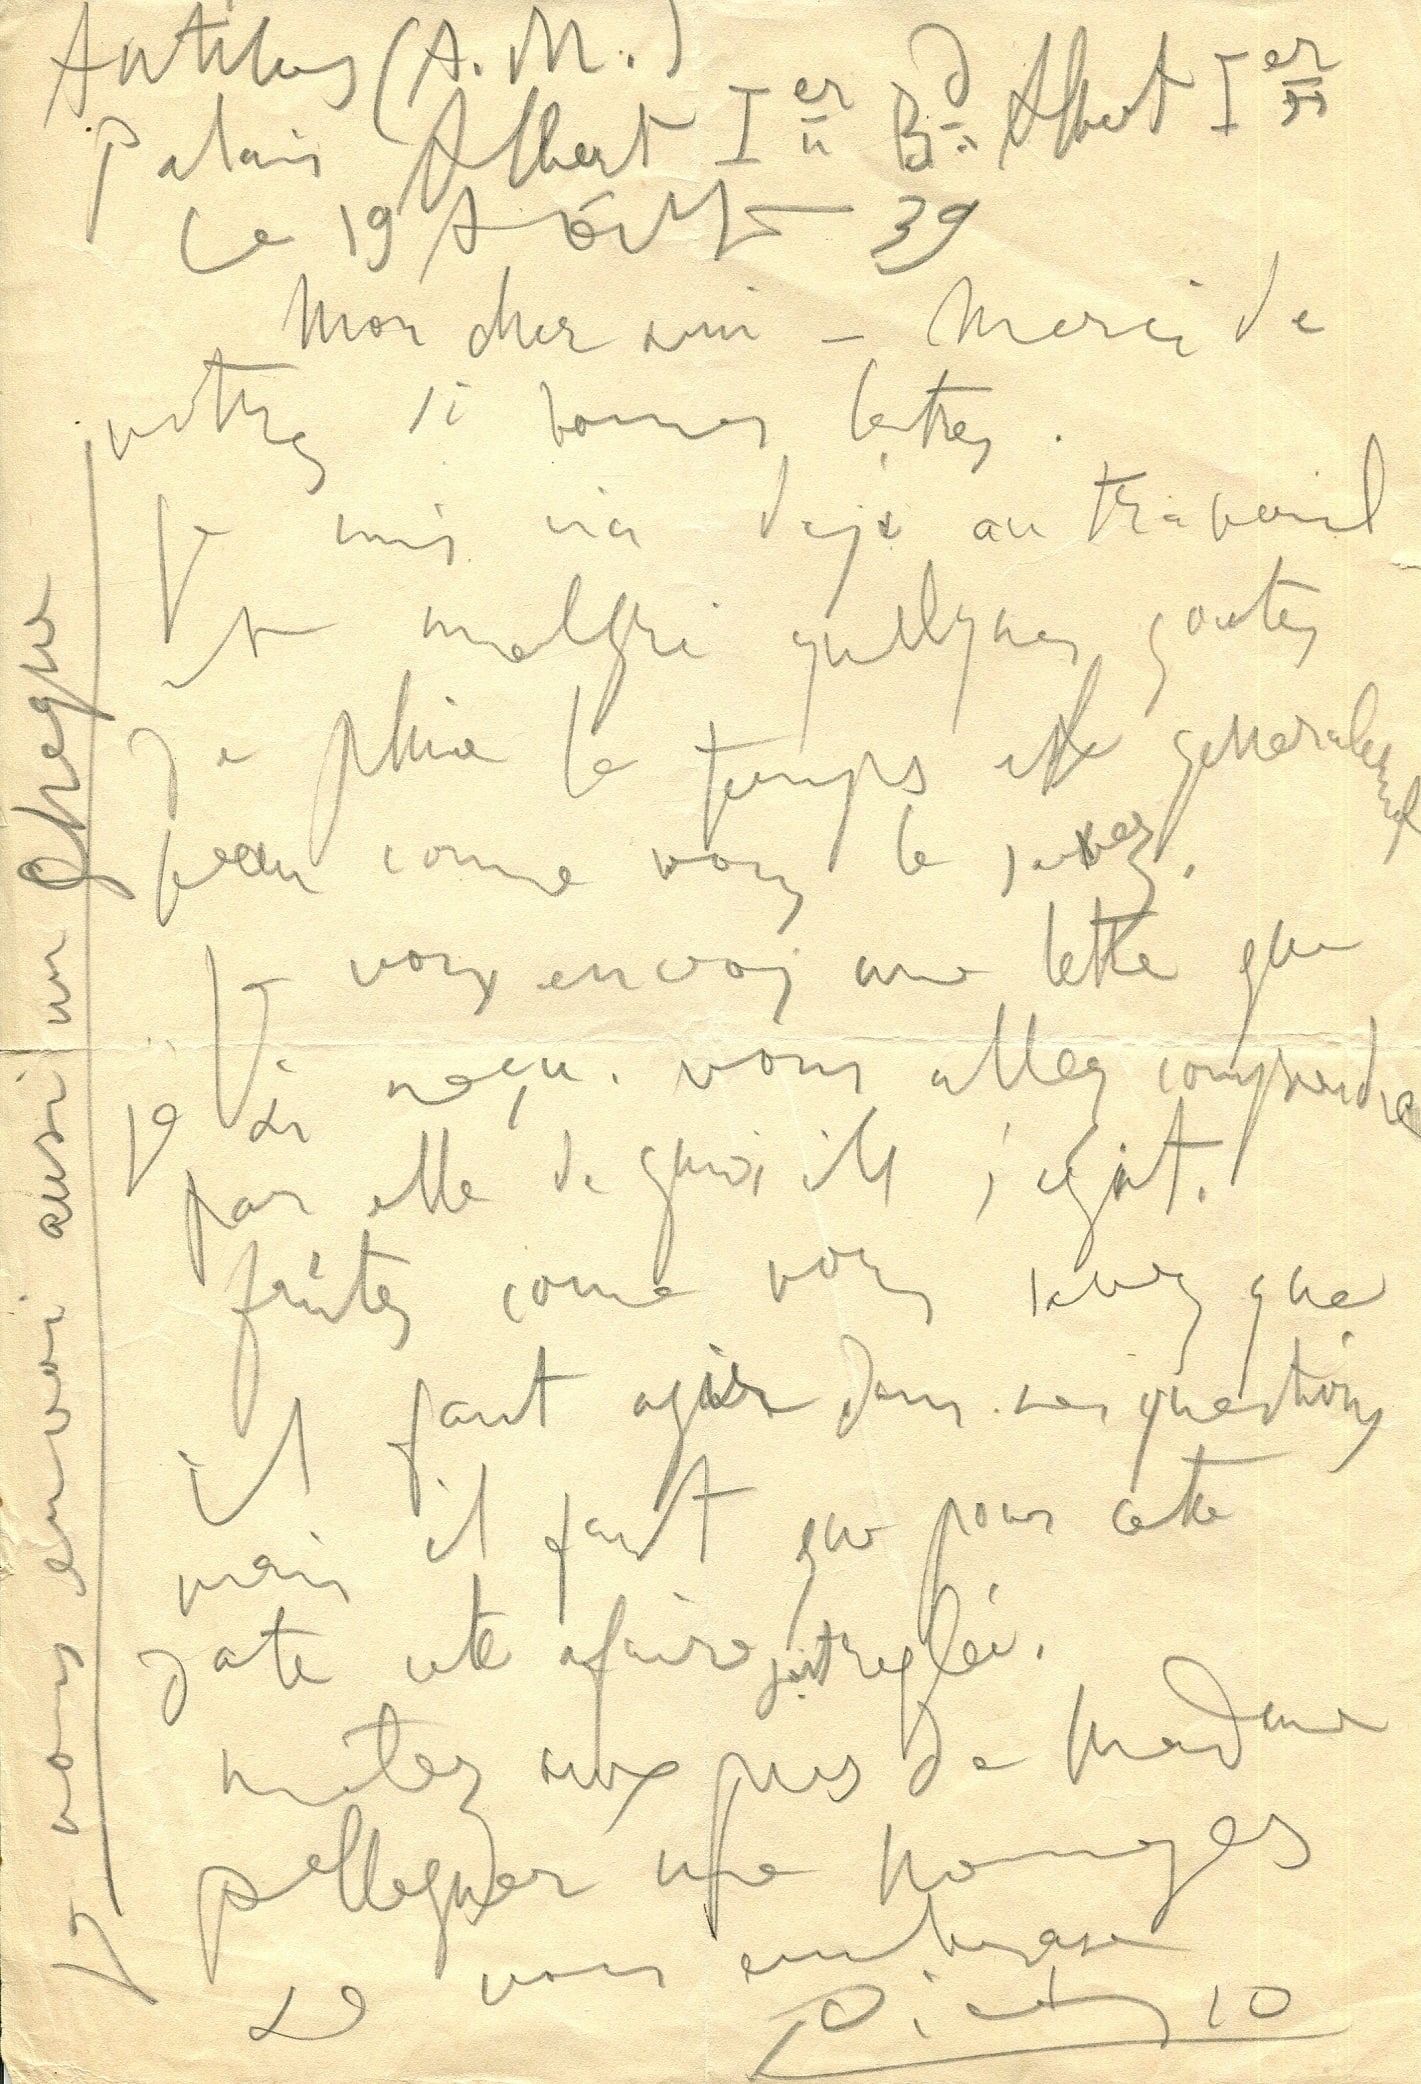 Antibes (A.M.)
Palais Albert Ier Bd Albert Ier
Le 19 Août 39
Mon cher ami – Merci de
votres si bonnes letres.
Je suis ici deja au travail
et malgré quelques goutes
de pluie le temps est generalement
beau comme vous le savez.
Je vous envoi une lettre que
je ai reçu. vous allez comprendre
par elle de quoi il s'agit.
faites come vous savez que
il faut agir dans ces questions
mais il faut que pour cette
date cette afaire soit reglée.
metez aux pies de Madame
Pellequer mes homages
Je vous embrasse
Picasso
Je vous envoi aussi un cheque